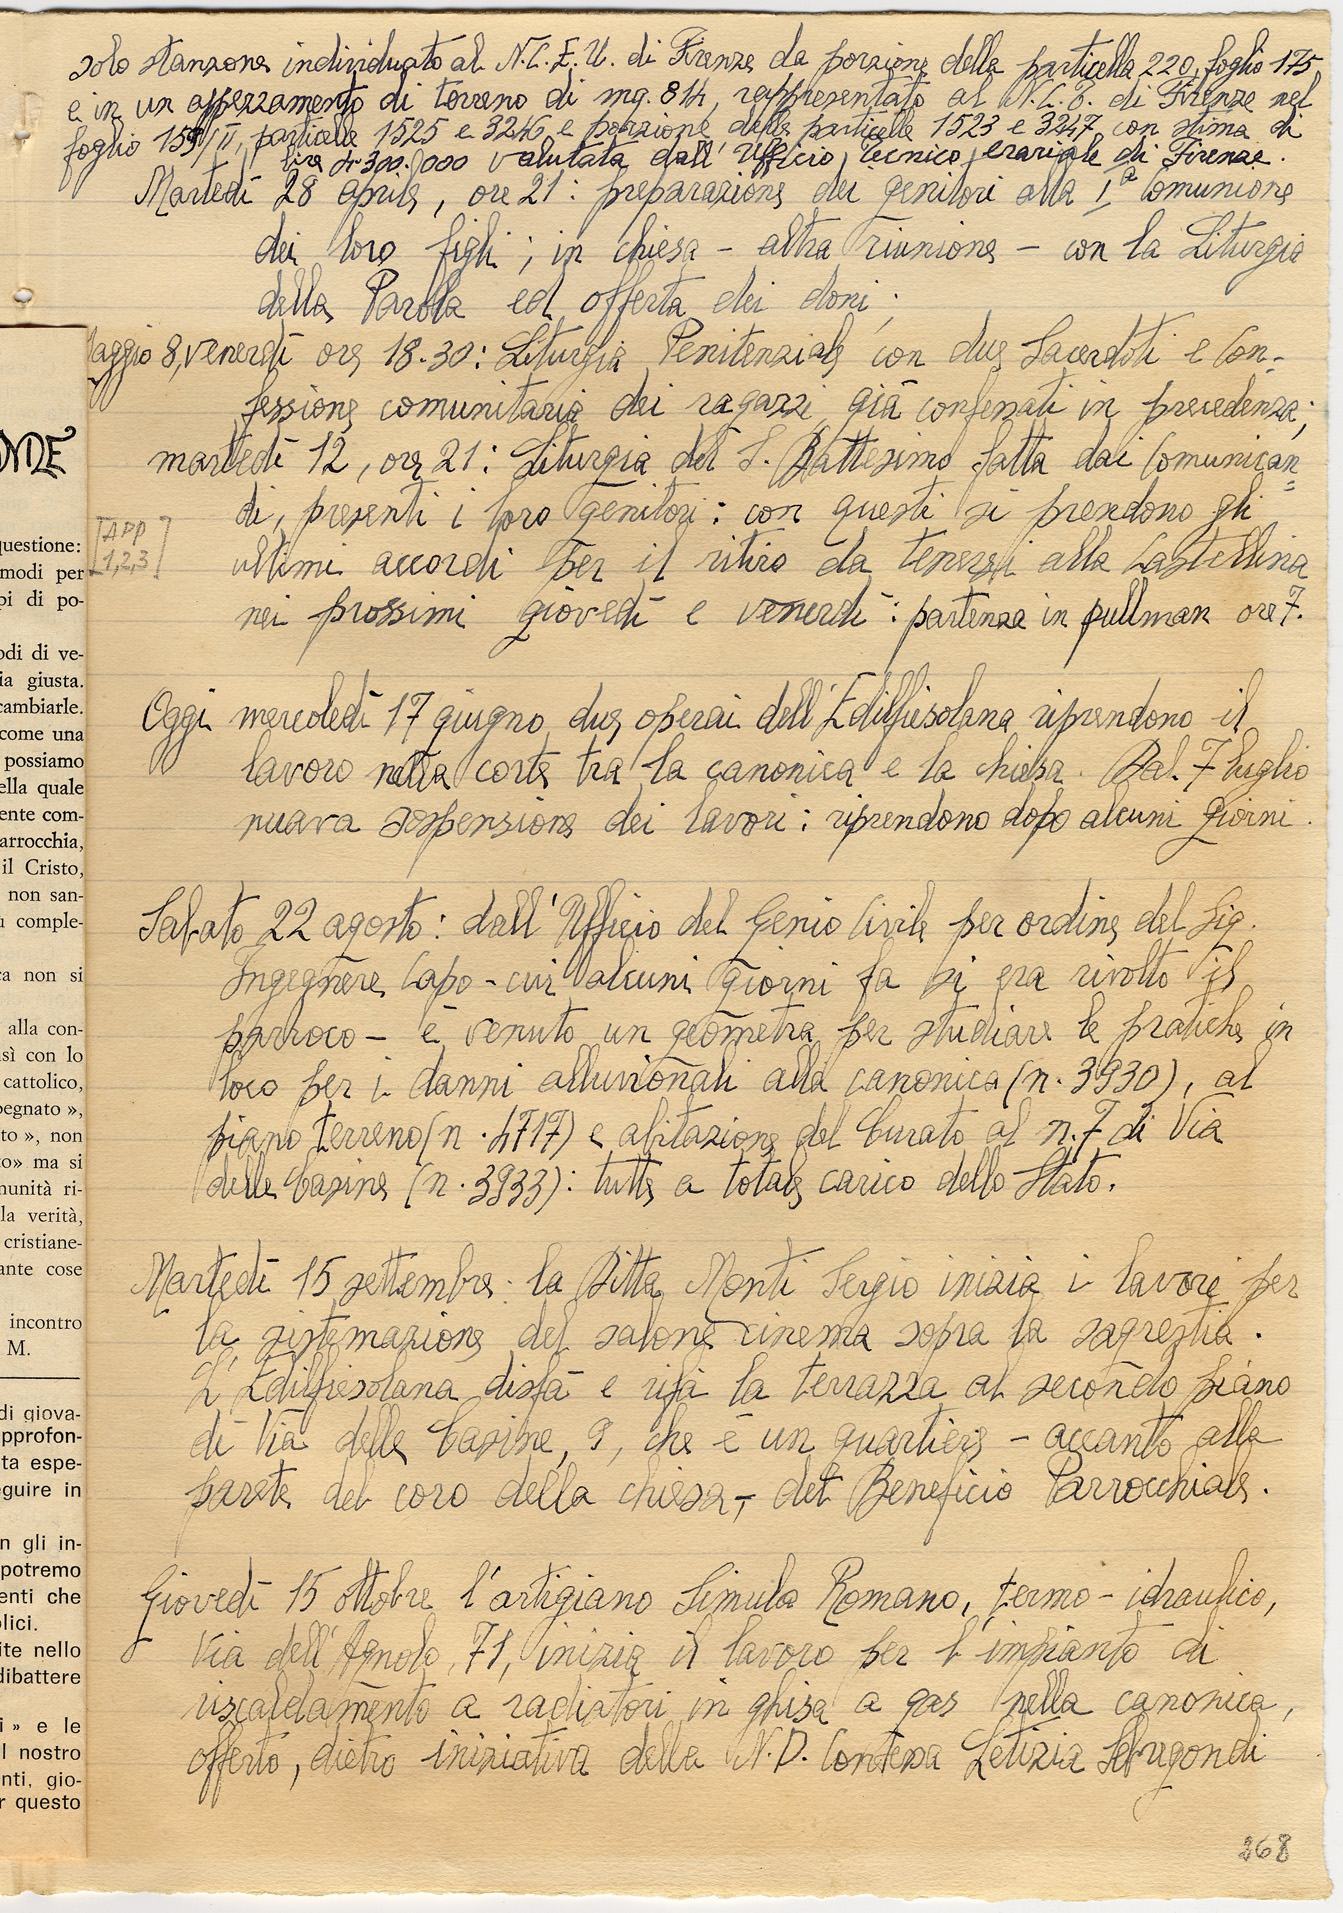 solo stanzone individuato al N.C.E.U. di Firenze da porzione della particella 220, foglio 175
e in un appezzamento di terreno di mq. 814, rappresentato al N.C.T. di Firenze nel
foglio 159/II, particelle 1525 e 3246 e porzione delle particelle 1523 e 3247 con stima di
lire 4.300.000 valutata dall'Ufficio Tecnico Erariale di Firenze.
Martedì 28 aprile, ore 21: preparazione dei genitori alla 1ª Comunione
dei loro figli; in chiesa – altra riunione – con la Liturgia
della Parola ed offerta dei doni;
Maggio 8, venerdì ore 18.30: Liturgia Penitenziale con due Sacerdoti e Con-
fessione comunitaria dei ragazzi già confessati in precedenza;
martedì 12, ore 21: Liturgia del S. Battesimo fatta dai Comunican=
di, presenti i loro genitori: con questi si prendono gli
[APP
1,2,3]
ultimi accordi per il ritiro da tenersi alla Castellina
nei prossimi giovedì e venerdì: partenza in pullman ore 7.
Oggi mercoledì 17 giugno due operai dell'Edilfiesolana riprendono il
lavoro nella corte tra la canonica e la chiesa. Dal 7 luglio
nuova sospensione dei lavori: riprendono dopo alcuni giorni.
Sabato 22 agosto: dall'Ufficio del Genio Civile per ordine del Sig.
Ingegnere Capo – cui alcuni giorni fa si era rivolto il
parroco – è venuto un geometra per studiare le pratiche in
loco per i danni alluvionali alla canonica (n. 3930), al
piano terreno (n. 4717) e abitazione del Curato al n. 7 di Via
delle Casine (n. 3933): tutte a totale carico dello Stato.
Martedì 15 settembre: la Ditta Monti Sergio inizia i lavori per
la sistemazione del salone cinema sopra la sagrestia.
L'Edilfiesolana disfà e rifà la terrazza al secondo piano
di Via delle Casine, 9, che è un quartiere – accanto alla
parete del coro della chiesa –, del Beneficio Parrocchiale.
Giovedì 15 ottobre l'artigiano Simula Romano, termo-idraulico,
Via dell'Agnolo, 71, inizia il lavoro per l'impianto di
riscaldamento a radiatori in ghisa a gas nella canonica,
offerto, dietro iniziativa della N.D. Contessa Letizia Sebregondi
268
uestione:
modi per
pi di po-
odi di ve-
ia giusta.
cambiarle.
come una
possiamo
ella quale
ente com-
arrocchia,
il Cristo,
non san-
ù comple-
ca non si
alla con-
sì con lo
cattolico,
pegnato »,
to », non
to» ma si
munità ri-
la verità,
cristiane-
ante cose
incontro
M.
di giova-
pprofon-
ta espe-
eguire in
n gli in-
potremo
enti che
olici.
ite nello
dibattere
i » e le
l nostro
nti, gio-
r questo